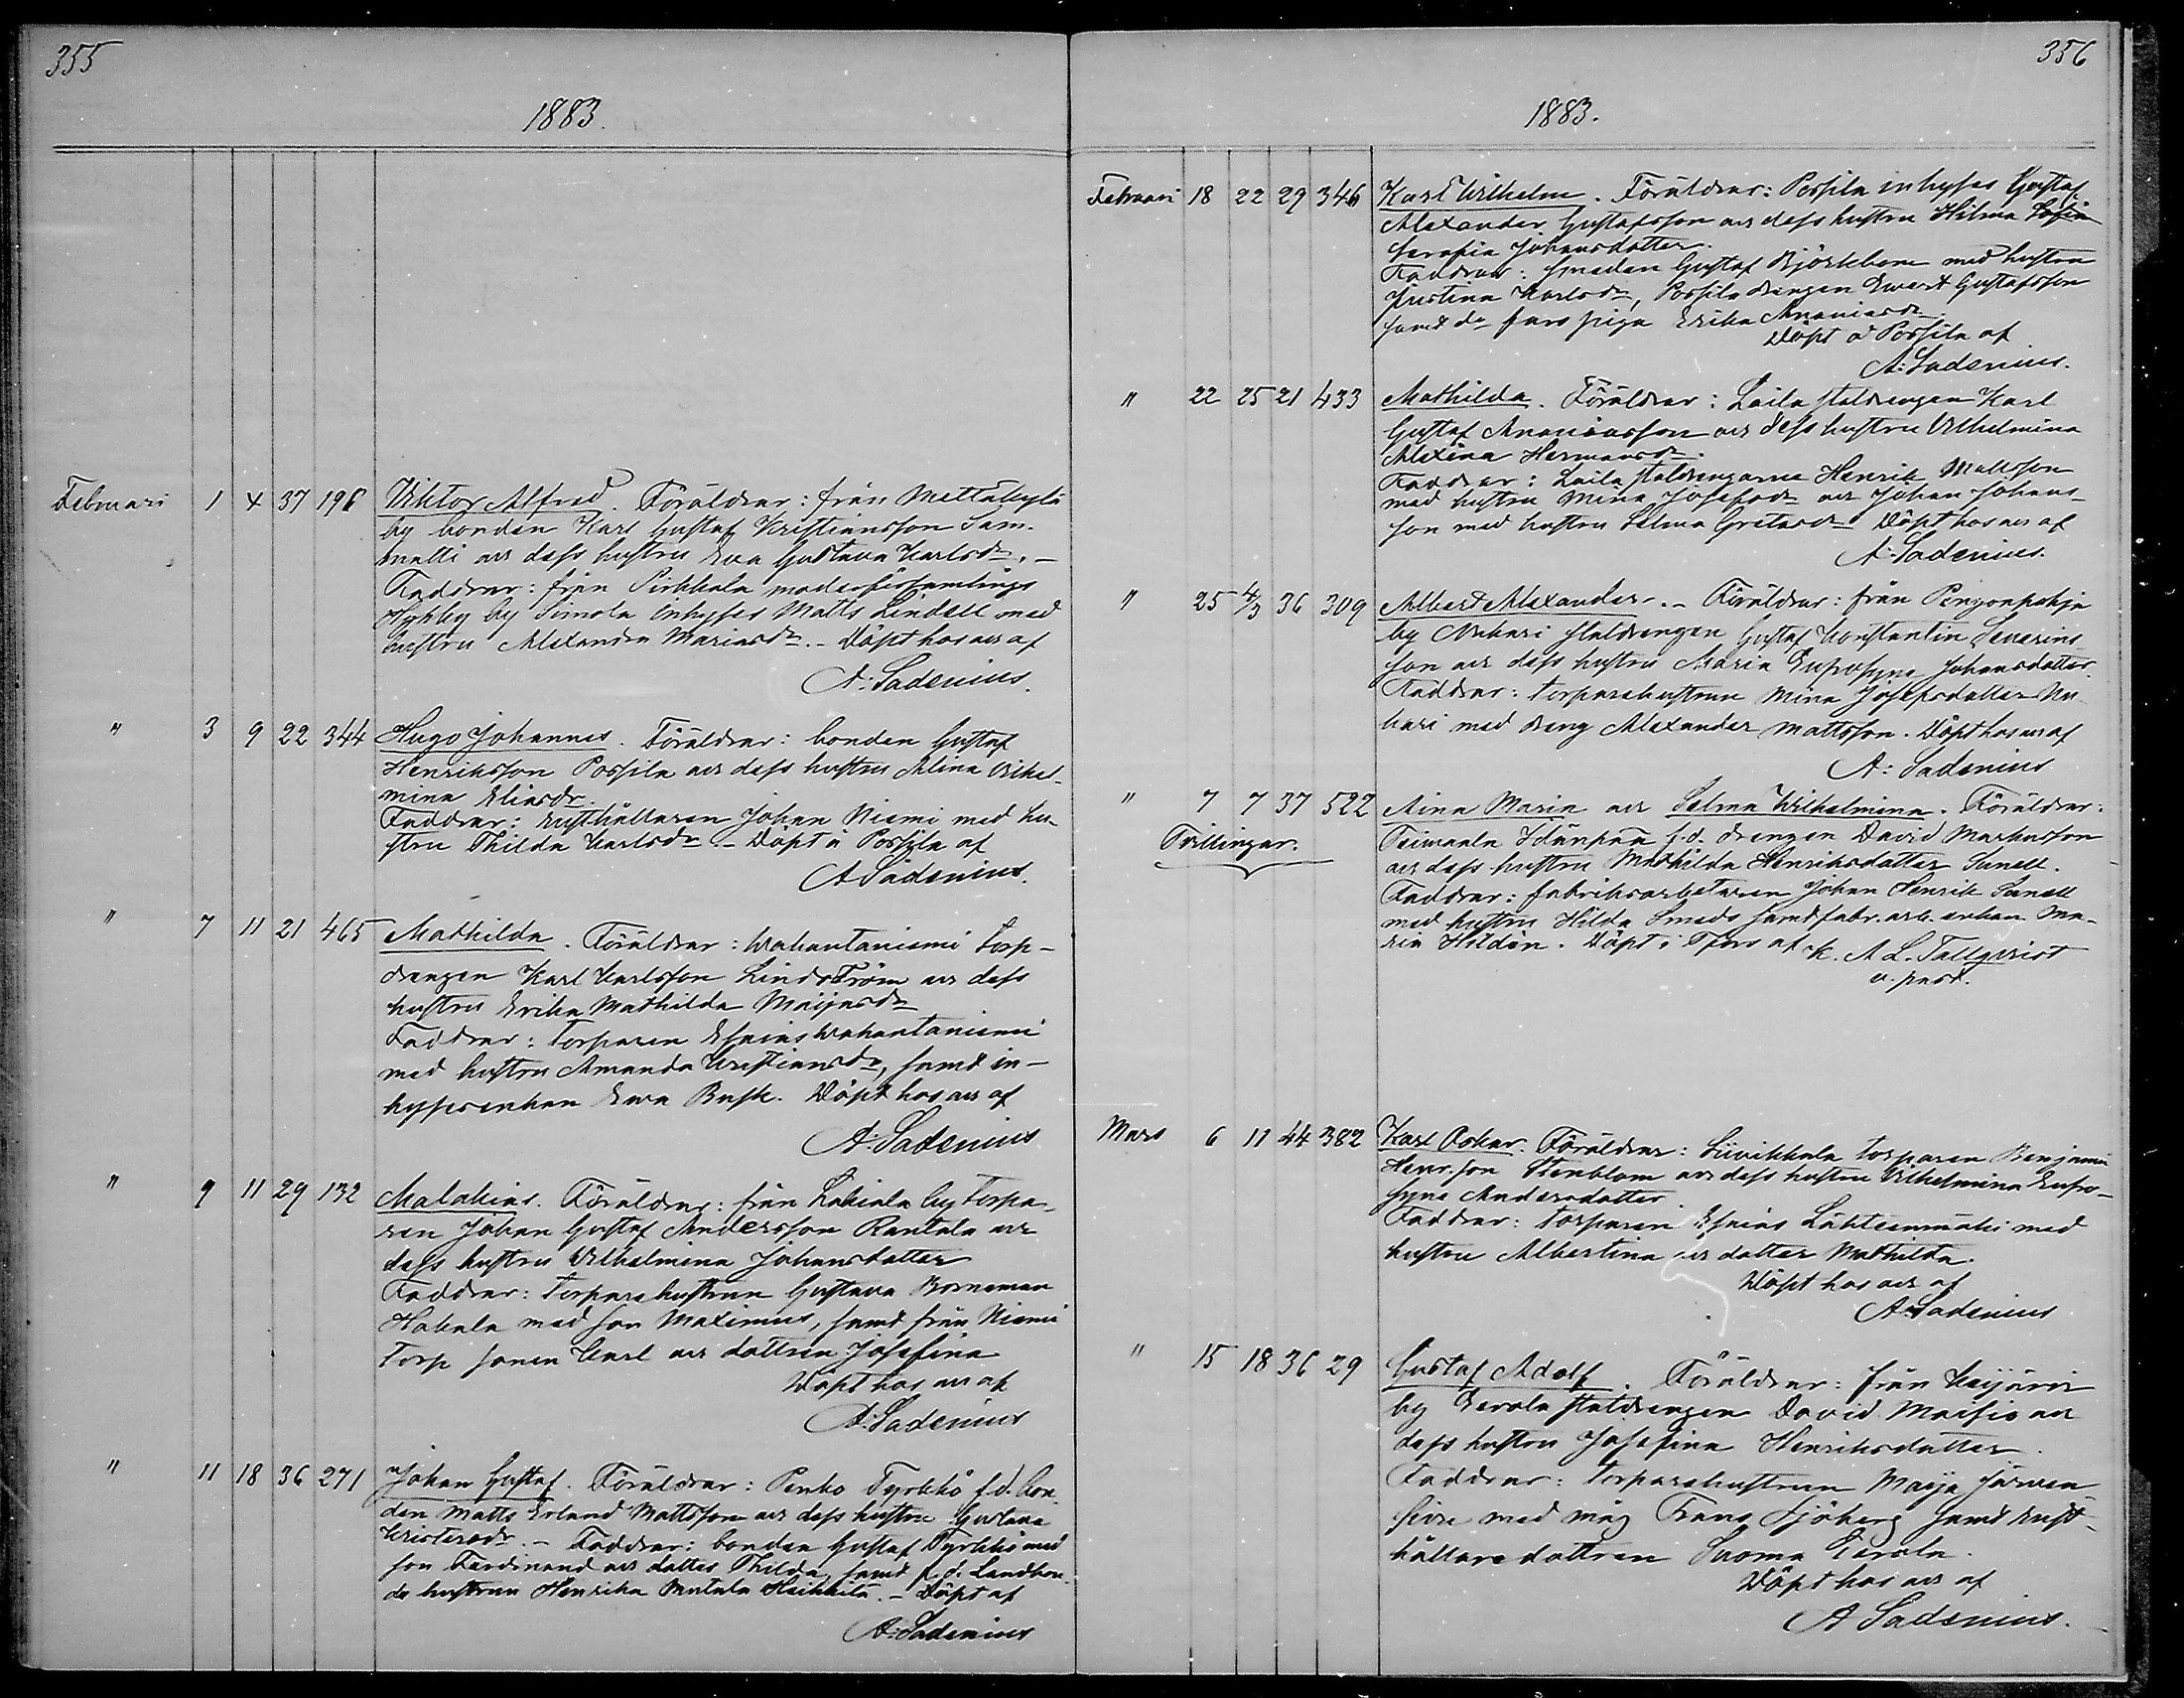 355
1883.
Februari 1 4 37 196 Viktor Alfred. Föräldrar: från Mettäkylä
by bonden Karl Gustaf Kristiansson Sam-
matti och dess hustru Eva Gustava Karlsdr. –
Faddrar: från Pirkkala moderförsamlings
by Simola inhyses Matts Lindell med
hustru Alexandra Mariasdr. – Döpt hos oss af
A: Sadenius.
" 3 9 22 344 Hugo Johannes. Föräldrar: bonden Gustaf
Henriksson Possila och dess hustru Alina Vilhel-
mina Eliasdr.
Faddrar: Rusthållaren Johan Niemi med hu-
stru Thilda Karlsdr – Döpt å Possila af
A Sadenius.
" 7 11 21 465 Mathilda. Föräldrar: Wahantaniemi torp-
drengen Karl Karlsson Lindström och dess
hustru Erika Mathilda Maijasdr
Faddrar: Torparen Esaias Wahantaniemi
med hustru Amanda Kristiansdr, samt in-
hysesenkan Ewa Rask. Döpt hos oss af
A: Sadenius
" 9 11 29 132 Malakias. Föräldrar: från Lakiala by torpa-
ren Johan Gustaf Andersson Rantala och
dess hustru Vilhelmina Johansdotter
Faddrar: torparehustrun Gustava Borneman
Hakala med son Maximus, samt från Niemi
torp sonen Karl och dottren Josefina
Döpt hos oss af
A: Sadenius
" 11 18 36 271 Johan Gustaf. Föräldrar: Penko Tyrkkö f.d. bon-
den Matts Erland Mattsson och dess hustru Gustava
Kristersdr. – Faddrar: bonden Gustaf Tyrkkö med
son Ferdinand och dotter Thilda, samt f.d. Landbon-
de hustrun Henrika Heikkilä. – Döpt af
A: Sadenius
356
1883.
Februari 18 22 29 346 Karl Vilhelm. Föräldrar: Possila inhyses Gustaf
Alexander Gustafsson och dess hustru Hilma Sofia
Serafia Johansdotter.
Faddrar: smeden Gustaf Björkbom med hustru
Kristina Karlsdr, Possila drengen Evert Gustafsson
samt do fars piga Erika Ananiasdr.
Döpt å Possila af
A: Sadenius.
" 22 25 21 433 Mathilda. Föräldrar: Laila statdrengen Karl
Gustaf Ananiasson och dess hustru Vilhelmina
Alexina Hermansdr.
Faddrar: Laila statdrengarne Henrik Mattsson
med hustru Mina Josefsdr och Johan Johans-
son med hustru Selma Gretasdr Döpt hos oss af
A: Sadenius.
" 25 4/3 36 309 Albert Alexander. – Föräldrar: från Penzonpohja
by Nuhari statdrengen Gustaf Konstantin Severins-
son och dess hustru Maria Eufrosyne Johansdotter.
Faddrar: torparehustrun Mina Josefsdotter Nu-
hari med dreng Alexander Mattsson. Döpt hos oss af
A: Sadenius
" 7 7 37 522 Aina Maria och Selma Wilhelmina. Föräldrar:
Tvillingar.
Teimaala Idänpää f.d. drengen David Markusson
och dess hustru Mathilda Henriksdotter Sanell.
Faddrar: fabriksarbetaren Johan Henrik Sanell
med hustru Hilda Smeds samt fabr. arb. enkan Ma-
ria Hildén. Döpt i T:fors af K. A L. Tallqvist
v. past.
Mars 6 11 44 382 Karl Oskar. Föräldrar: Siivikkala torparen Benjamin
Henr.son Stenblom och dess hustru Vilhelmina Eufro-
syne Andersdotter.
Faddrar: torparen Esaias Lähteenmäki med
hustru Albertina och dotter Mathilda.
Döpt hos oss af
A: Sadenius
" 15 18 36 29 Gustaf Adolf. Föräldrar: från Keijärvi
by Eerola statdrengen David Moisio och
dess hustru Josefina Henriksdotter.
Faddrar: torparehustrun Maija Järven
sivu med måg Frans Sjöberg samt Rust-
hållaredottren Saoma Eerola.
Döpt hos oss af
A Sadenius.